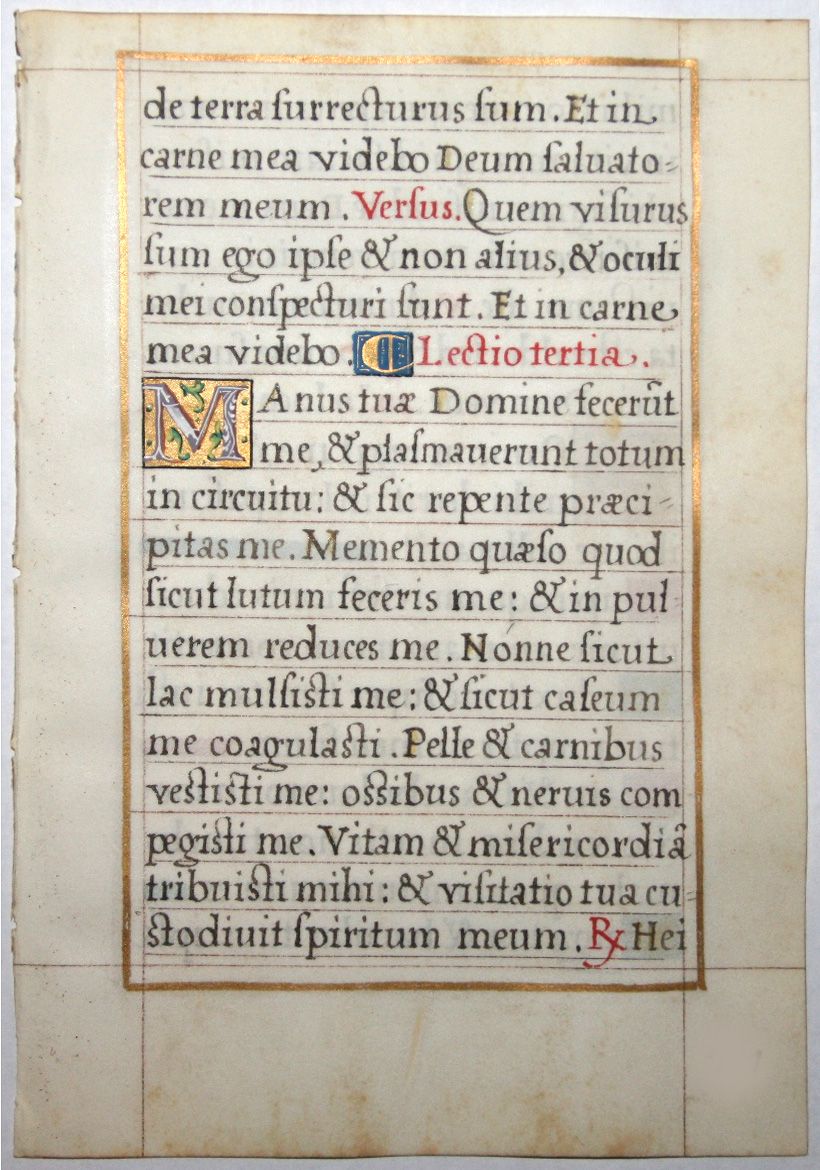 de terra ſurrecturus ſum. Et in
carne mea videbo Deum ſaluato-
rem meum. Verſus. Quem viſurus
ſum ego ipſe & non alius, & oculi
mei conſpecturi ſunt. Et in carne
mea videbo. Lectio tertia.
MAnus tuæ Domine fecerūt
me, & plaſmauerunt totum
in circuitu: & ſic repente præci-
pitas me. Memento quæſo quod
ſicut lutum feceris me: & in pul
uerem reduces me. Nónne ſicut
lac mulſiſti me: & ſicut caſeum
me coagulaſti. Pelle & carnibus
veſtiſti me: oſſibus & neruis com
pegiſti me. Vitam & miſericordiā
tribuiſti mihi: & viſitatio tua cu-
ſtodiuit ſpiritum meum. ℟ Hei